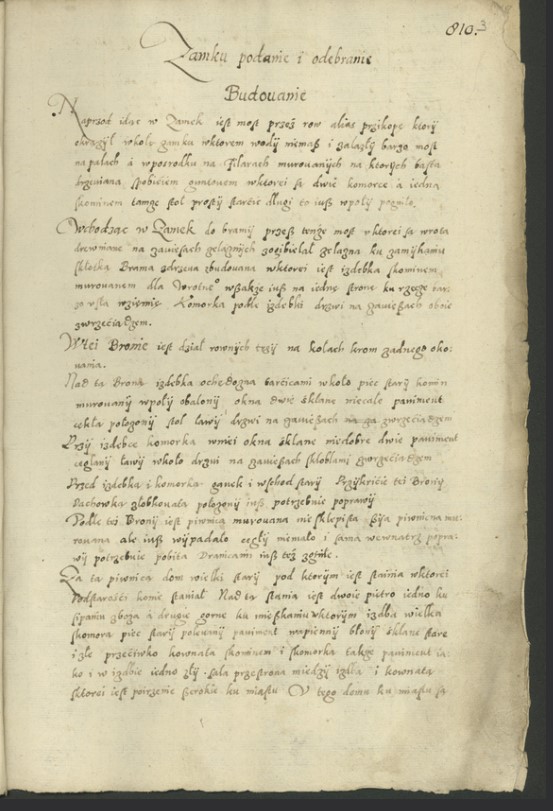 810. 3
Zamku podanie i odebranie
Budouanie
Naprzod idąc w Zamek iest most przes row alias przikopę ktorÿ
okrązÿł wkoło zamku wktorem wodÿ niemasz i zalazłÿ barzo most
na palach á wposrodku na Filarach murouanÿch na ktorÿch baszta
drzeuiana spobiciem guntouem wktorei są dwie komorce á iedna
skominem tamże stoł prostÿ długi to iusz wpołÿ pogniło.
Wchodząc w Zamek do bramÿ przesz tenże most v ktorei są wrota
drewniane na zawiesach żelaznÿch żelazna ku zamÿkaniu
skłotką Brama zdrzeua zbudowana wktorei iest izdebka skominem
murouanem dla Wrotne° wszakże iusz na iednę stronę ku rzece
wziemię Komorka podle izdebki drzwi na zawiesach oboie
zwrzeciądzem.
Wtei Bronie iest dział rownÿch na kołach krom żadnego oko-
uania.
Nad tą Broną izdebka ochędożna tarcicami wkoło piec starÿ komin
murowanÿ wpołÿ obalonÿ okna dwie sklane niecałe pawiment
cegłą położonÿ stoł ławÿ drzwi na zawiesach zwrzeciądzem
Przÿ izdebce komorka wniei okna sklane niedobre dwie pawiment
ceglanÿ ławÿ wkoło drzwi na zawiesach skoblami zwrzeciądzem
Przed izdebką i komorką ganek i wschod starÿ Przÿkricie tei Bronÿ
Dachowką złobkouatą położonÿ iusz potrzebuie poprawÿ
Podle tei Bronÿ iest piwnica murowana niesklepista Szija piwniczna mu-
rowana ale iusz wÿpadało cegłÿ niemało i sama wewnątrz popra-
wÿ potrzebuie pobita Dranicami iusz też zgniłe.
Za tą piwnicą dom wielki starÿ pod ktorÿm iest stainia wktorei
Podstarości konie stawiał Nad tą stainią iest dwoie piętro iedno ku
sipaniu zboża á drugie gorne ku mieszkaniu wktorÿm izdba wielka
skomorą piec starÿ polewanÿ pawiment wapiennÿ błonÿ sklane stare
i złe przeciwko kownata skominem i skomorką także pawiment ia-
ko i w izdbie iedno złÿ. sala przestrona miedzÿ izdbą i kownatą
sktorei iest poirzenie szerokie ku miastu V tego domu ku miastu są